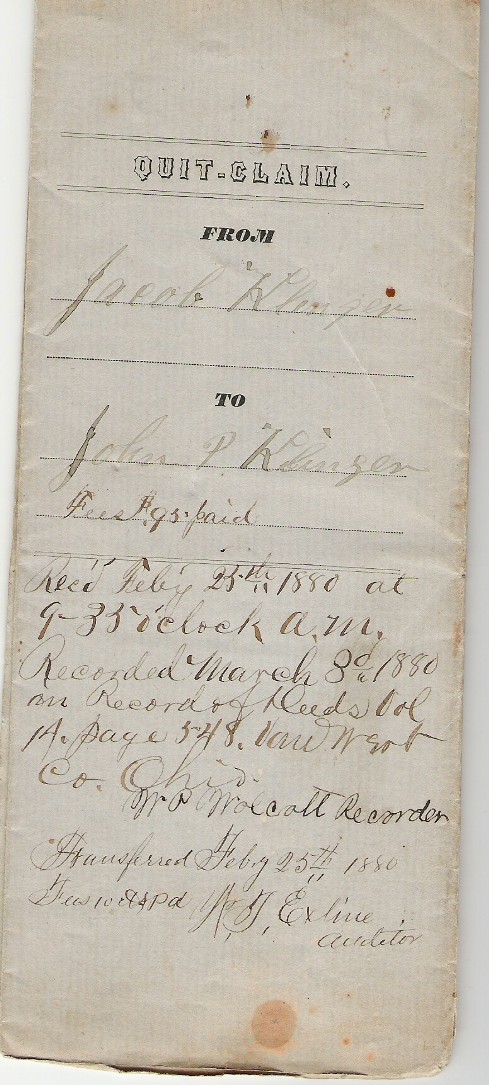 QUIT-CLAIM.
FROM
Jacob Klinger
TO
John P. Klinger
Fees $.95 paid
Rec'd Feby 25th 1880 at
9-35 o'clock a.m.
Recorded March 3d 1880
in Record of Deeds Vol
14. page 548. Van Wert
Co. Ohio.
W P Wolcott Recorder
Transferred Feby 25th 1880
Fees 10 cts Pd
Exline
Auditor